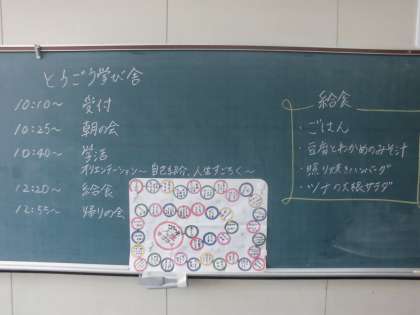 とうごう学び舎
10:10～ 受付
10:25～ 朝の会
10:40～ 学活
オリエンテーション～自己紹介、人生すごろく～
12:20～ 給食
12:55～ 帰りの会
給食
・ごはん
・豆腐とわかめのみそ汁
・照り焼きハンバーグ
・ツナの大根サラダ